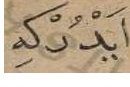 اَيْدُرْكِهِ